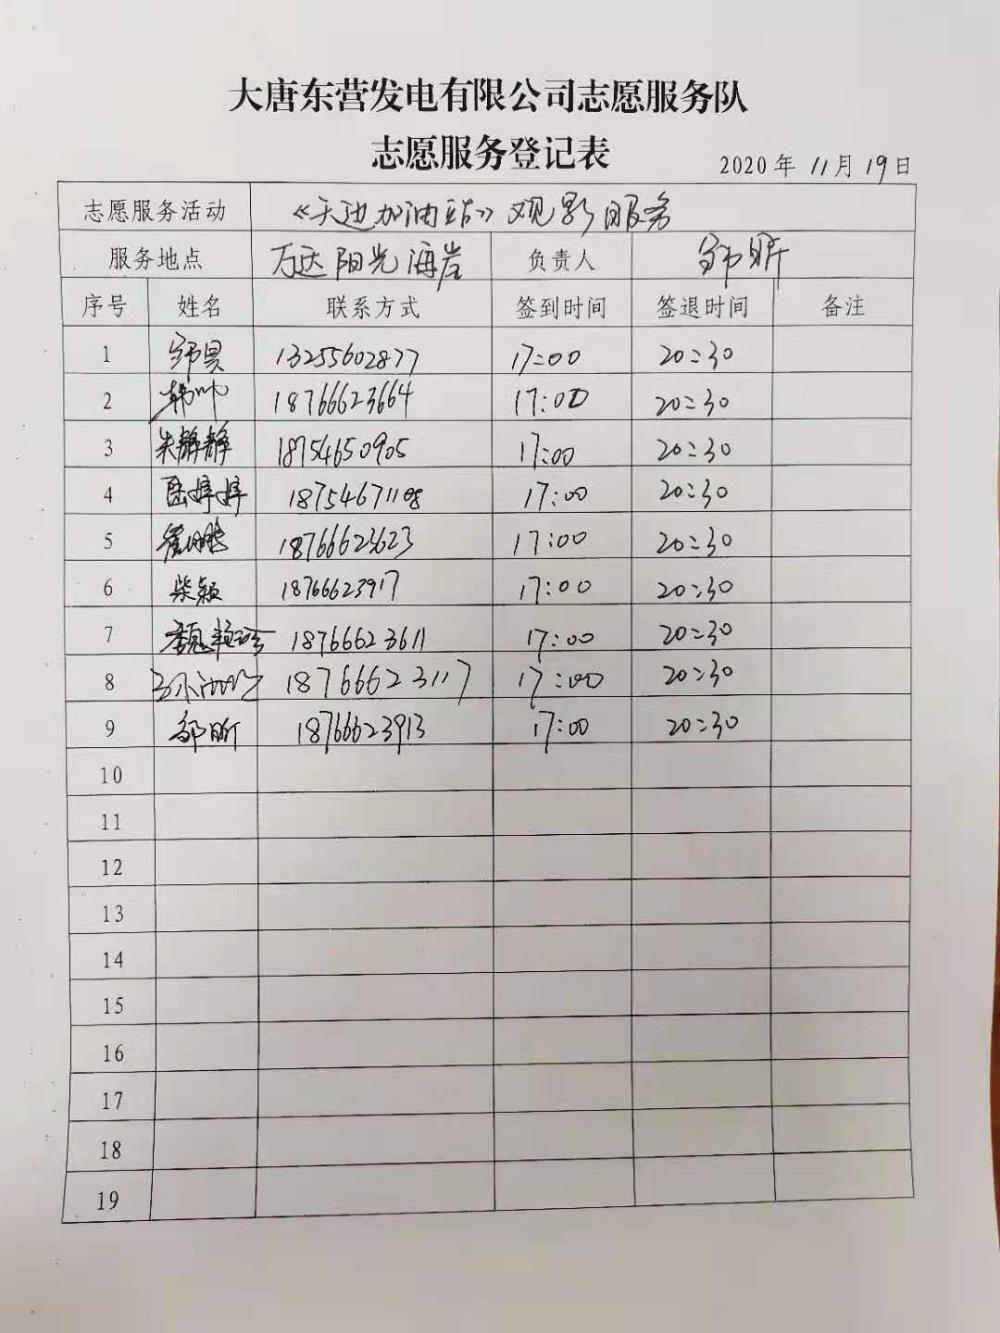 大唐东营发电有限公司志愿服务队
志愿服务登记表
2020年11月19日
志愿服务活动 《天边加油站》观影服务
服务地点 万达阳光海岸 负责人
序号 姓名 联系方式 签到时间 签退时间 备注
1 13255602877 17:00 20:30
2 韩帅 18766623664 17:00 20:30
3 朱静静 18754650905 17:00 20:30
4 岳婷婷 18754671108 17:00 20:30
5 18766623623 17:00 20:30
6 柴颖 18766623917 17:00 20:30
7 18766623611 17:00 20:30
8 18766623117 17:00 20:30
9 邹昕 18766623913 17:00 20:30
10
11
12
13
14
15
16
17
18
19